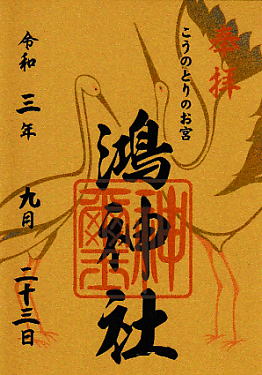 奉拝
こうのとりのお宮
鴻神社
令和三年九月二十三日